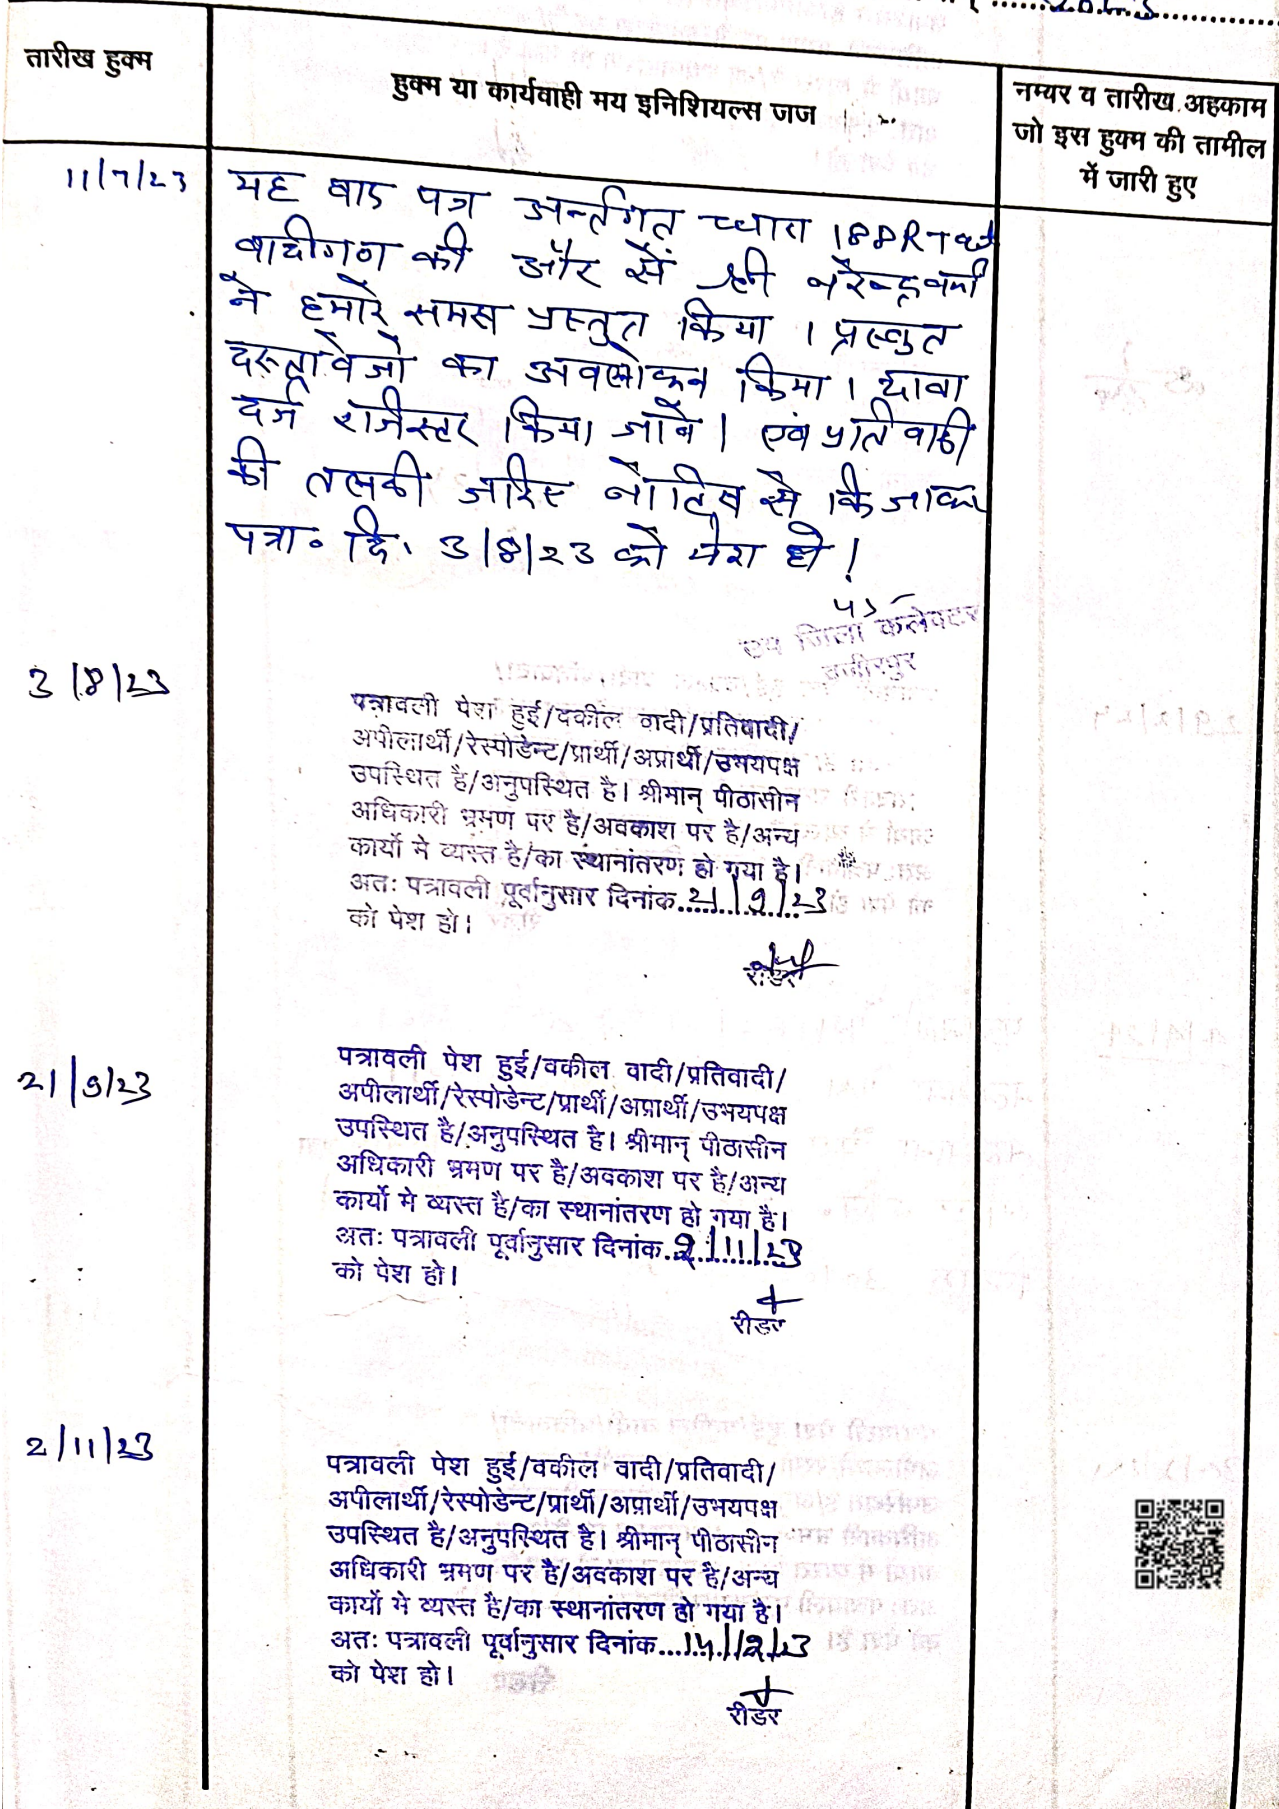 तारीख हुक्म
हुक्म या कार्यवाही मय इनिशियल्स जज
नम्बर व तारीख अहकाम
जो इस हुक्म की तामील
में जारी हुए
11/7/23
यह वाद पत्र अर्न्तगत धारा 188 RT act
वादीगण की और से श्री नरेन्द्र वर्मा
ने हमारे समक्ष प्रस्तुत किया । प्रस्तुत
दस्तावेजो का अवलोकन किया । दावा
दर्ज राजिस्टर किया जावे । एवं प्रतिवादी
की तलबी जरिए नोटिस से कि जाकर
पत्रा० दि. 3/8/23 को पेश हो !
उप जिला कलेक्टर
वजीरपुर
3/8/23
पत्रावली पेश हुई/वकील वादी/प्रतिवादी/
अपीलार्थी/रेस्पोडेन्ट/प्रार्थी/अप्रार्थी/उभयपक्ष
उपस्थित है/अनुपस्थित है। श्रीमान् पीठासीन
अधिकारी भ्रमण पर है/अवकाश पर है/अन्य
कार्यो मे व्यस्त है/का स्थानांतरण हो गया है।
अतः पत्रावली पूर्वानुसार दिनांक..21/9/23
को पेश हो।
रीडर
21/9/23
पत्रावली पेश हुई/वकील वादी/प्रतिवादी/
अपीलार्थी/रेस्पोडेन्ट/प्रार्थी/अप्रार्थी/उभयपक्ष
उपस्थित है/अनुपस्थित है। श्रीमान् पीठासीन
अधिकारी भ्रमण पर है/अवकाश पर है/अन्य
कार्यो मे व्यस्त है/का स्थानांतरण हो गया है।
अतः पत्रावली पूर्वानुसार दिनांक..2/11/23
को पेश हो।
रीडर
2/11/23
पत्रावली पेश हुई/वकील वादी/प्रतिवादी/
अपीलार्थी/रेस्पोडेन्ट/प्रार्थी/अप्रार्थी/उभयपक्ष
उपस्थित है/अनुपस्थित है। श्रीमान् पीठासीन
अधिकारी भ्रमण पर है/अवकाश पर है/अन्य
कार्यो मे व्यस्त है/का स्थानांतरण हो गया है।
अतः पत्रावली पूर्वानुसार दिनांक...14/12/23
को पेश हो।
रीडर